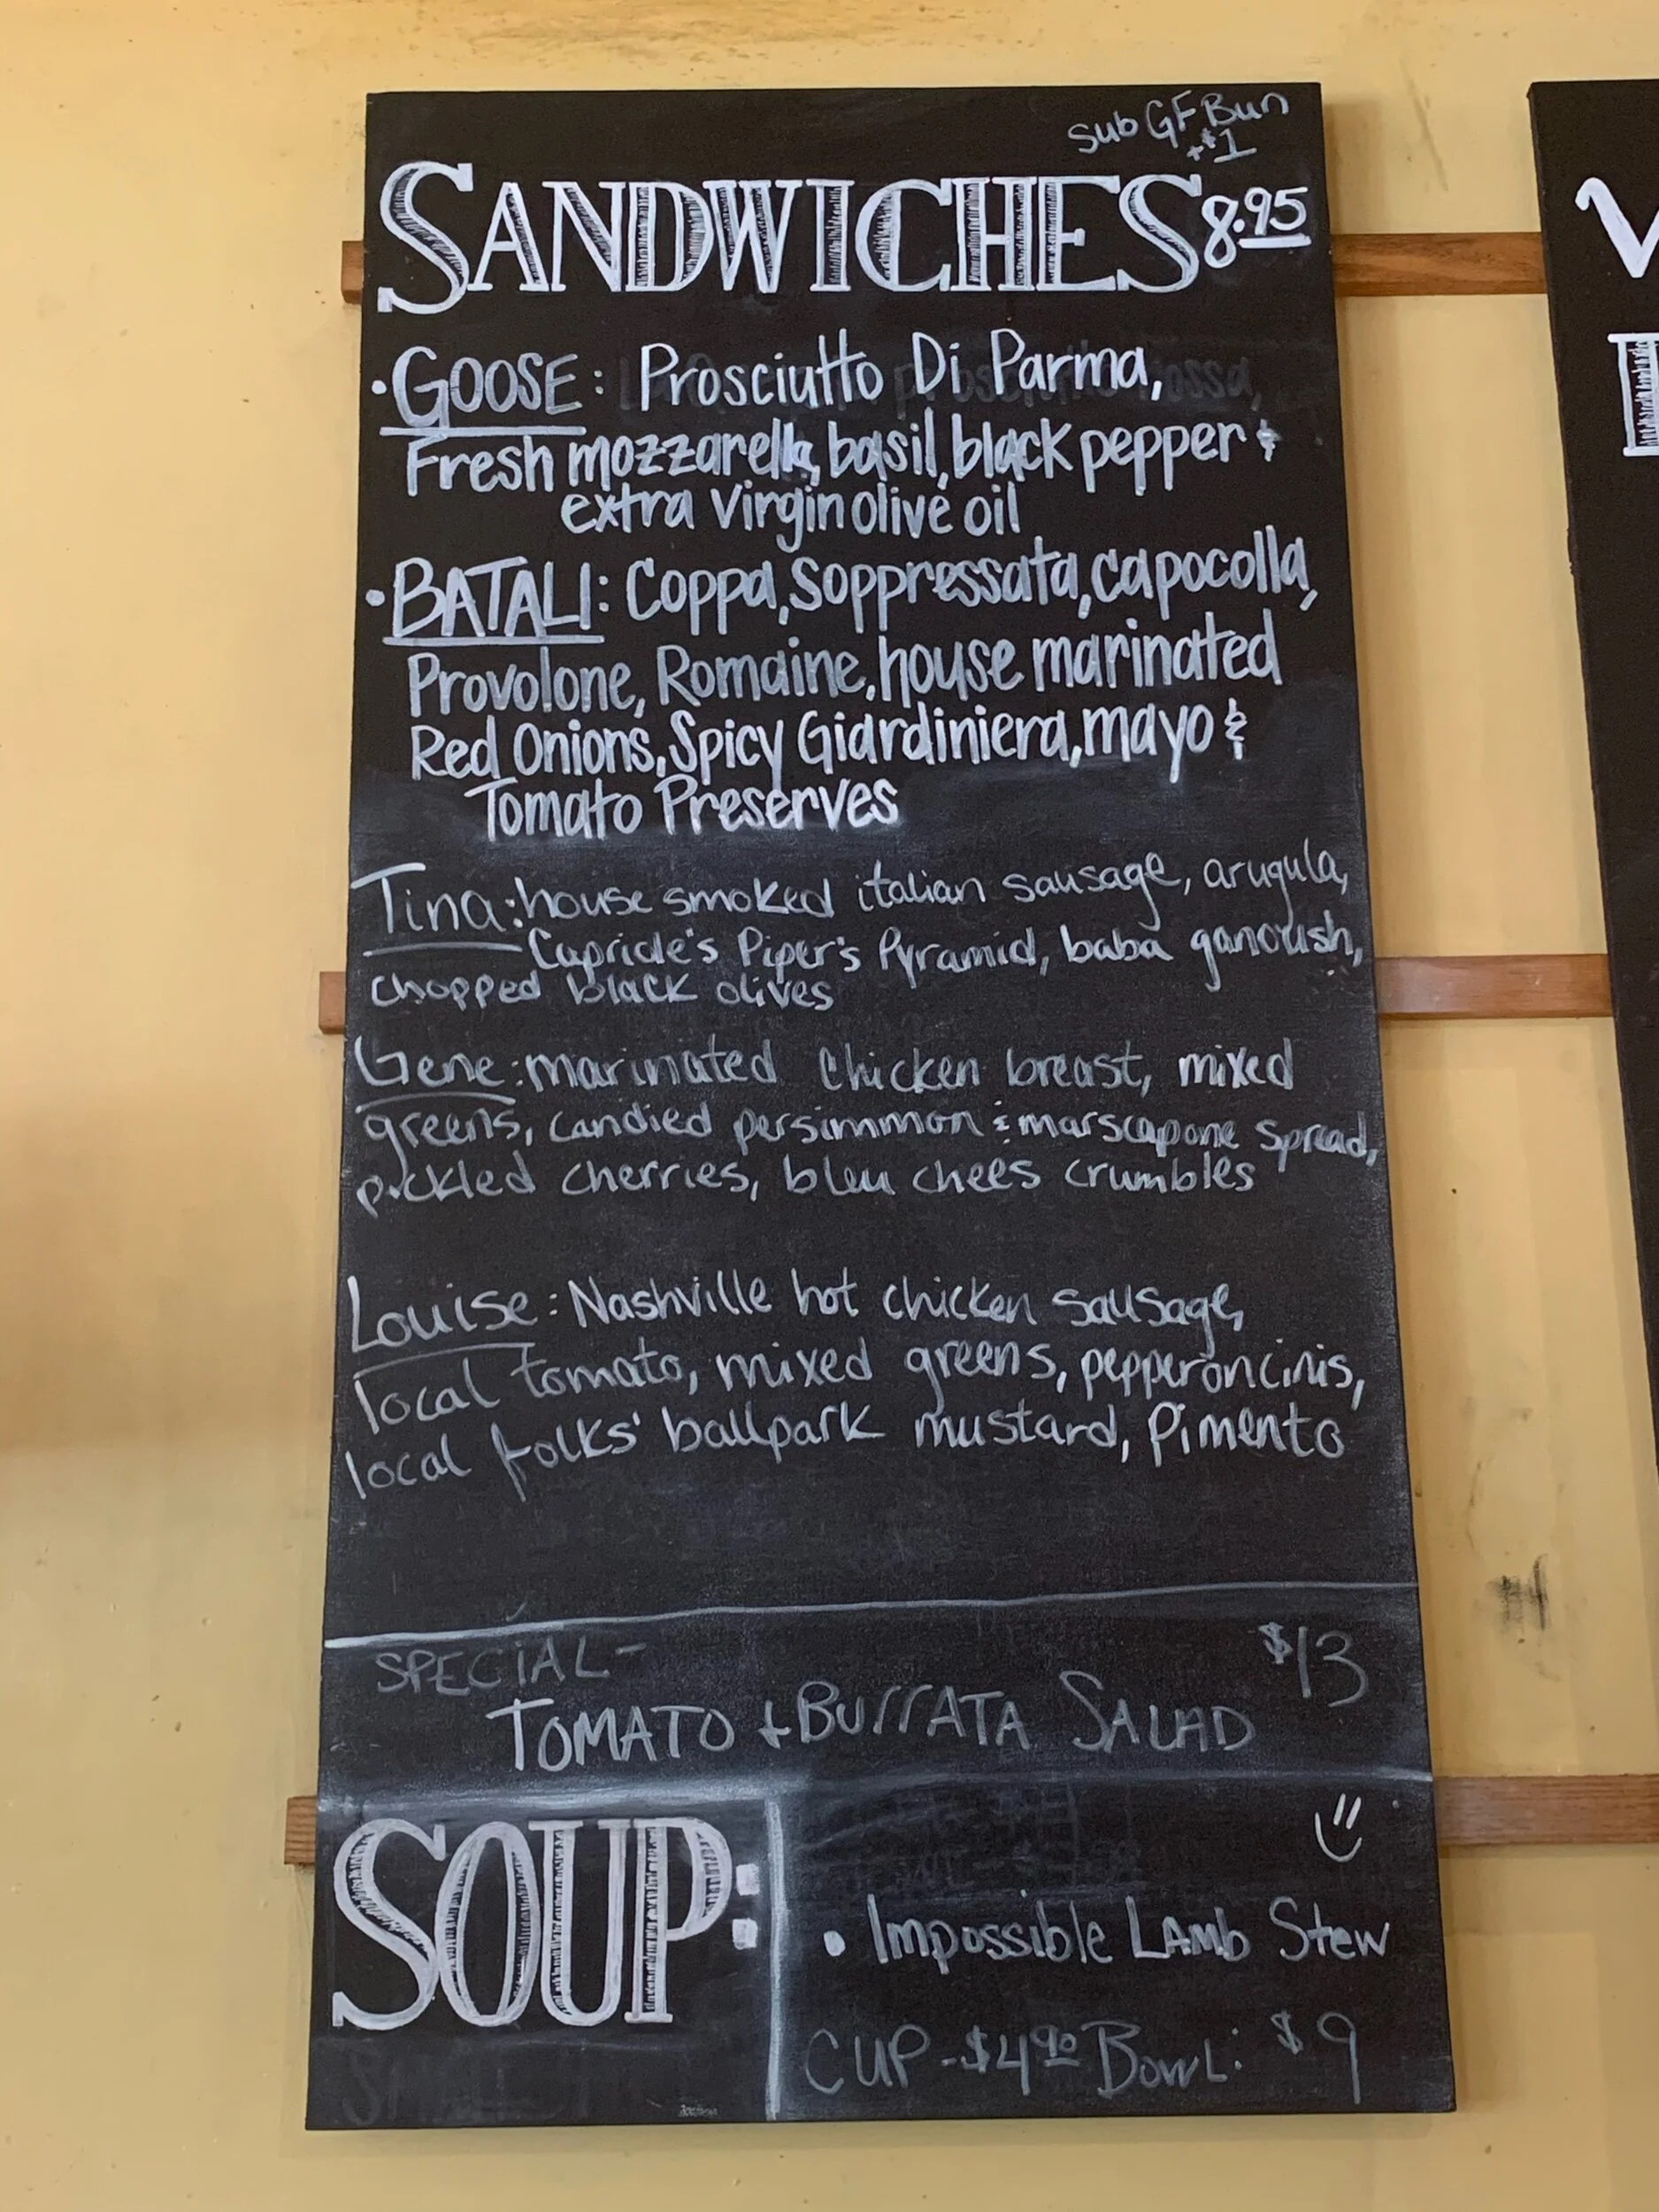 Sub GF Bun
+$1
SANDWICHES 8.95
• GOOSE: Prosciutto Di Parma,
Fresh mozzarella, basil, black pepper &
extra virgin olive oil
• BATALI: Coppa, Soppressata, capocolla,
Provolone, Romaine, house marinated
Red Onions, Spicy Giardiniera, mayo &
Tomato Preserves
Tina: house smoked italian sausage, arugula,
Capriole's Piper's Pyramid, baba ganoush,
chopped black olives
Gene: marinated chicken breast, mixed
greens, candied persimmon & marscapone spread,
pickled cherries, bleu chees crumbles
Louise: Nashville hot chicken sausage,
local tomato, mixed greens, pepperoncinis,
local folks' ballpark mustard, Pimento
SPECIAL- $13
TOMATO + BURRATA SALAD
SOUP:
• Impossible Lamb Stew
CUP - $4.90 Bowl: $9